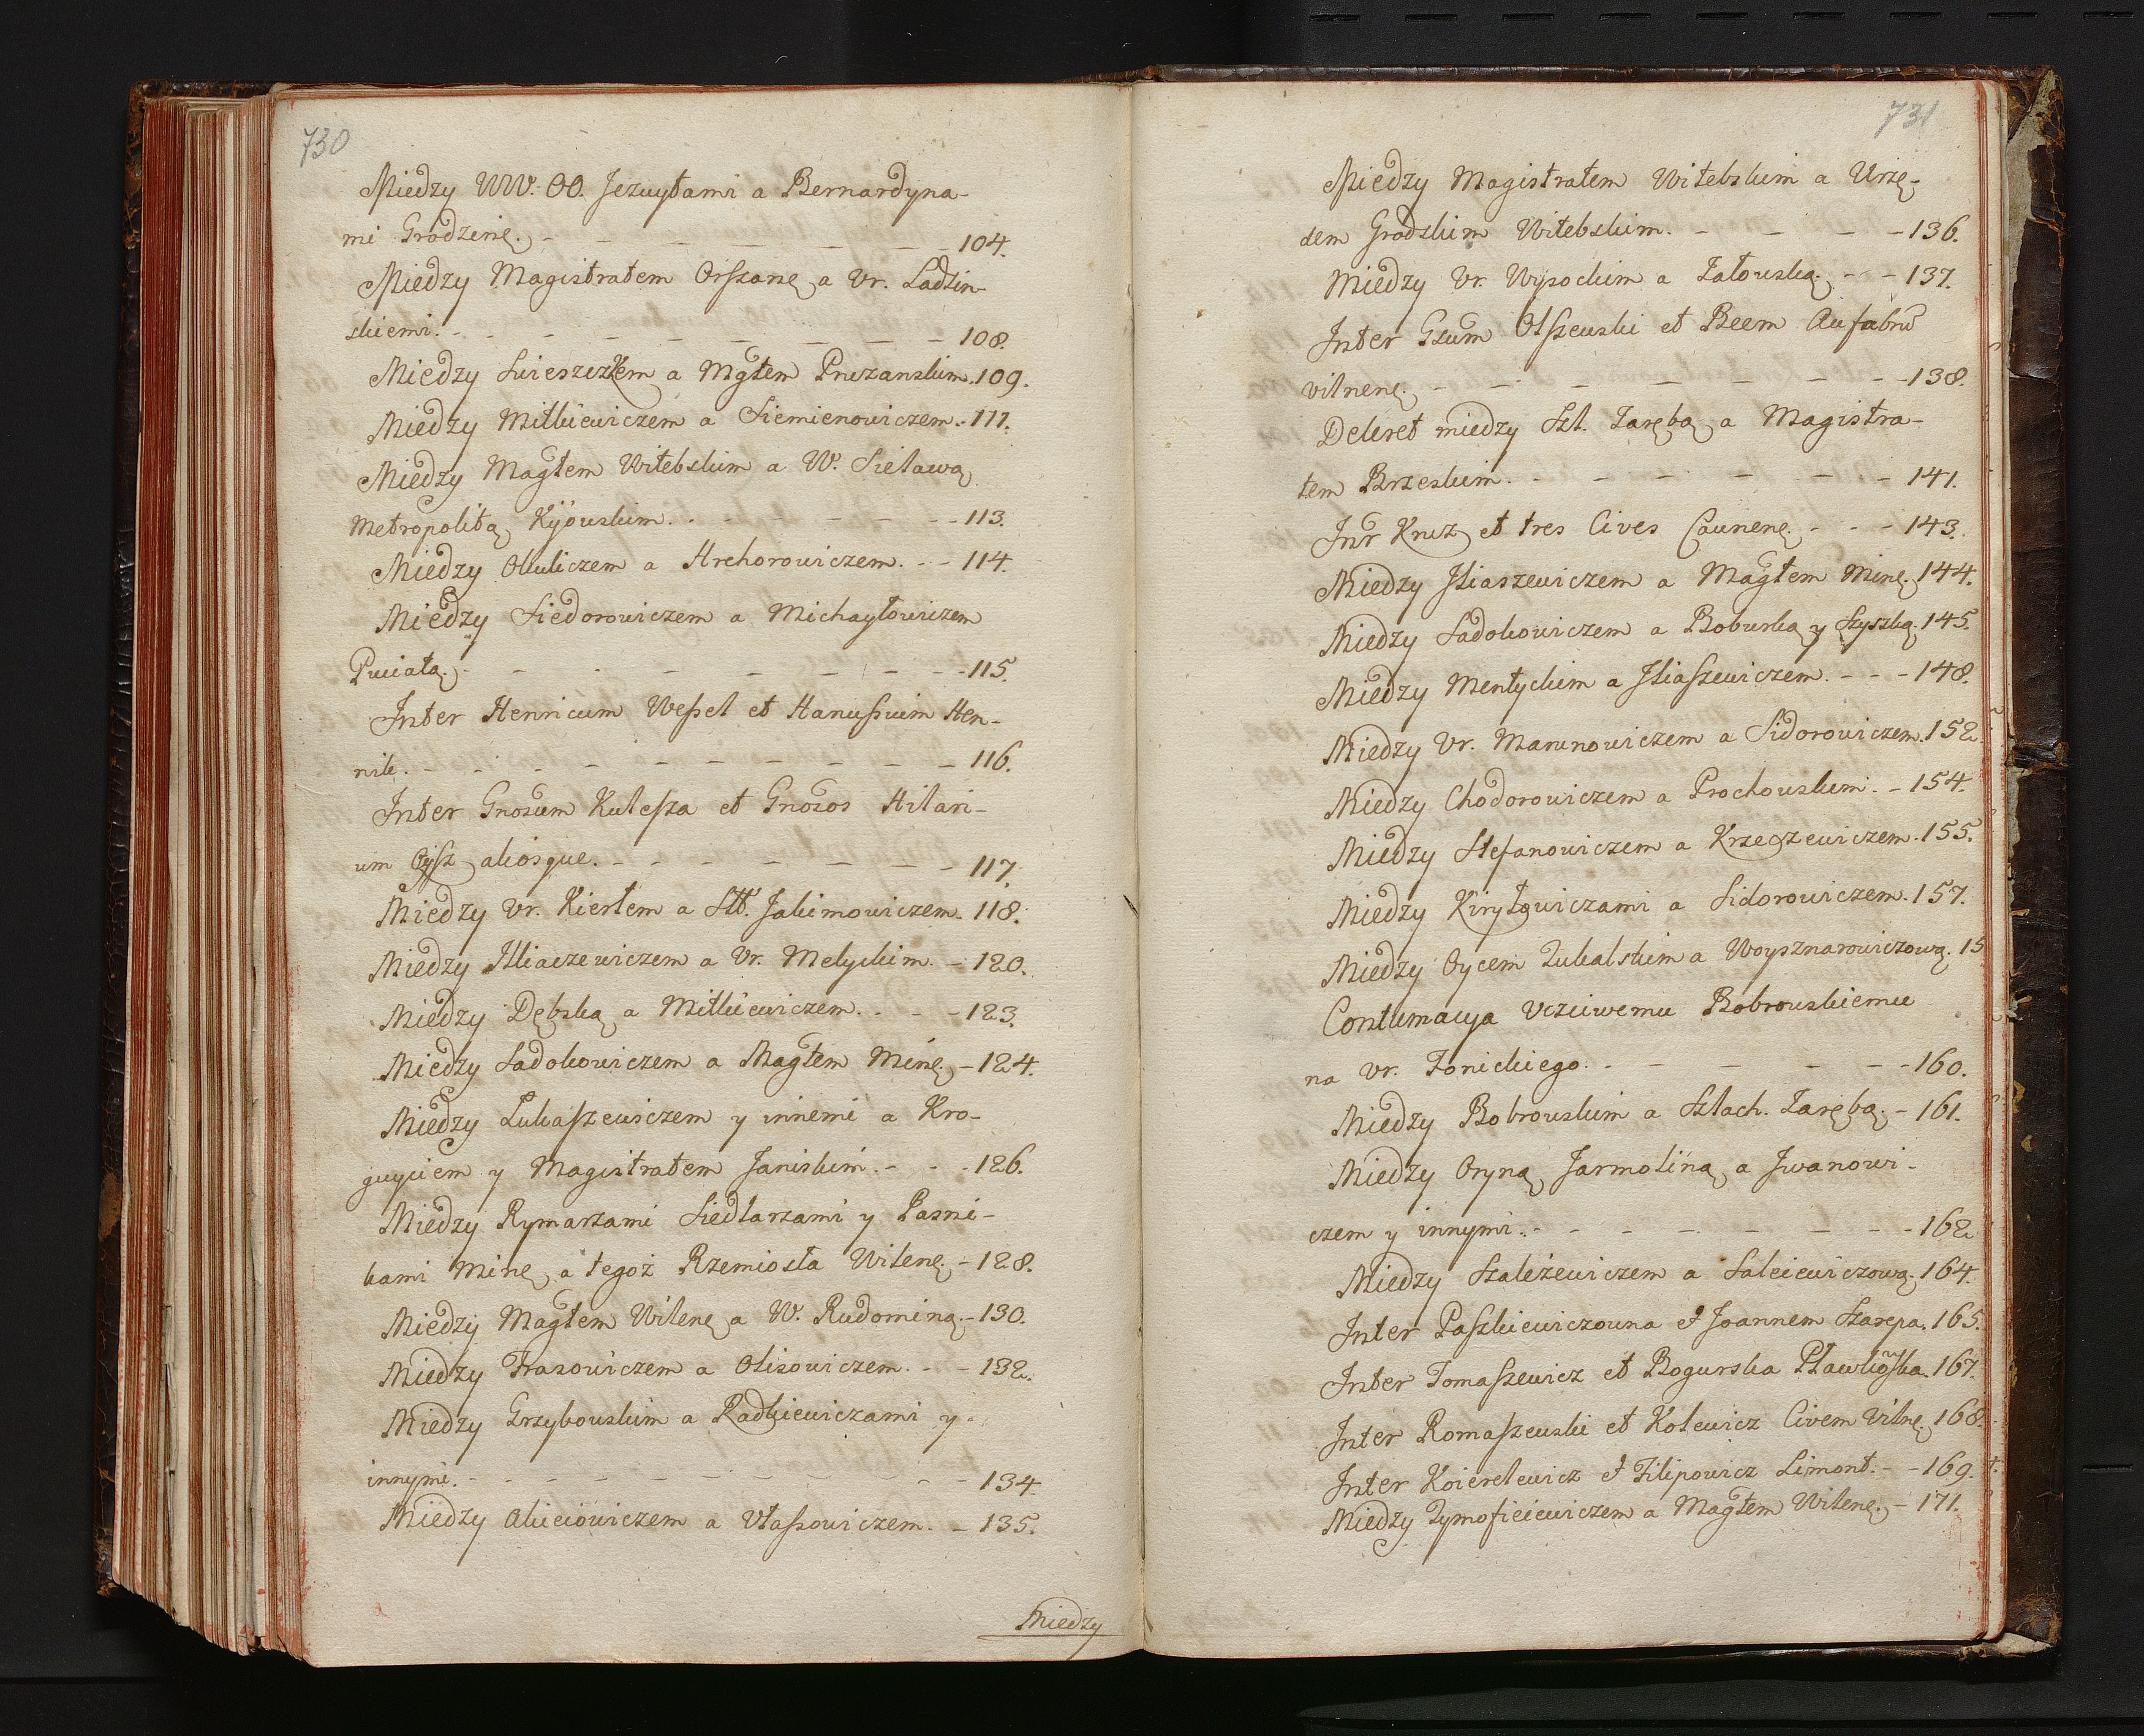 730
Miedzy WW. OO. Jezuytami a Bernardyna-
mi Grodzinę. - - - - - - - 104.
Miedzy Magistratem Orszanę a Ur. Ladzin-
skiemi. - - - - - - - - - 108.
Miedzy Swieszczkem a Mgtem Pruzanskim. 109.
Miedzy Mitkiewiczem a Siemienowiczem. - 111.
Miedzy Magtem Witebskim a W. Sielawą
Metropolitą Kyowskim. - - - - - - 113.
Miedzy Okuliczem a Hrehorowiczem. - - 114.
Miedzy Siedorowiczem a Michayłowiczem
Pwiatą. - - - - - - - - 115.
Inter Henricum Wessel et Hanussium Hen-
nik. - - - - - - - - - - 116.
Inter Gnosum Kulesza et Gnosos Hilari-
um aliosque. - - - - - - - 117.
Miedzy Ur. Kierłem a Stt. Jakimowiczem. 118.
Miedzy Iliaszewiczem a Ur. Melyckim. - 120.
Miedzy Dębską a Mitkiewiczem. - - - 123.
Miedzy Sadokowiczem a Magtem Minę. - 124.
Miedzy Łukaszewiczem y innemi a Kro-
guyciem y Magistratem Janiskim. - - - 126.
Miedzy Rymarzami Siedlarzami y Pasni-
kami Minę a tegoż Rzemiosła Wilenę. - 128.
Miedzy Magtem Wilenę a W. Rudominą. - 130.
Miedzy Frasowiczem a Olisowiczem. - - 132.
Miedzy Grzybowskim a Radkiewiczami y
innymi. - - - - - - - - - 134.
Miedzy Aliciowiczem a Ułassowiczem. - 135.
Miedzy
731
Miedzy Magistratem Witebskim a Urzę-
dem Grodskim Witebskim. - - - - 136.
Miedzy Ur. Wysockim a Załouską. - - 137.
Inter Gsum Olszewski et Beem Aufabrū
vilnenę. - - - - - - - - 138.
Dekret miedzy Szl. Zarębą a Magistra-
tem Brzeskim. - - - - - - 141.
Inr Kruz et tres Cives Caunenę. - - - 143.
Miedzy Iliaszewiczem a Magtem Minę. 144.
Miedzy Sadokowiczem a Boburką y Szyszką. 145.
Miedzy Mentyckim a Iliaszewiczem. - - - 148.
Miedzy Ur. Marunowiczem a Sidorowiczem. 152.
Miedzy Chodorowiczem a Prochouskim. - 154.
Miedzy Stefanowiczem a Krzeczewiczem. 155.
Miedzy Kiryłowiczami a Sidorowiczem. 157.
Miedzy Oycem Zukalskim a Woysznarowiczową. 15
Contumacya Uczciwemu Bobrouskiemu
na Ur. Fonickiego. - - - - - - 160.
Miedzy Bobrouskim a Szlach. Zarębą. - 161.
Miedzy Oryną Jarmoliną a Iwanowi-
czem y innymi. - - - - - - - 162.
Miedzy Szależewiczem a Saleiewiczową. 164.
Inter Paszkiewiczouna et Joannem Szarepa. 165.
Inter Tomaszewicz et Bogurska Pławkoska. 167.
Inter Romaszewski et Kolewicz Civem Vilnę. 168.
Inter Koierelewicz et Filipowicz Limont. - - 169.
Miedzy Tymoficiewiczem a Magtem Wilenę. - 171.